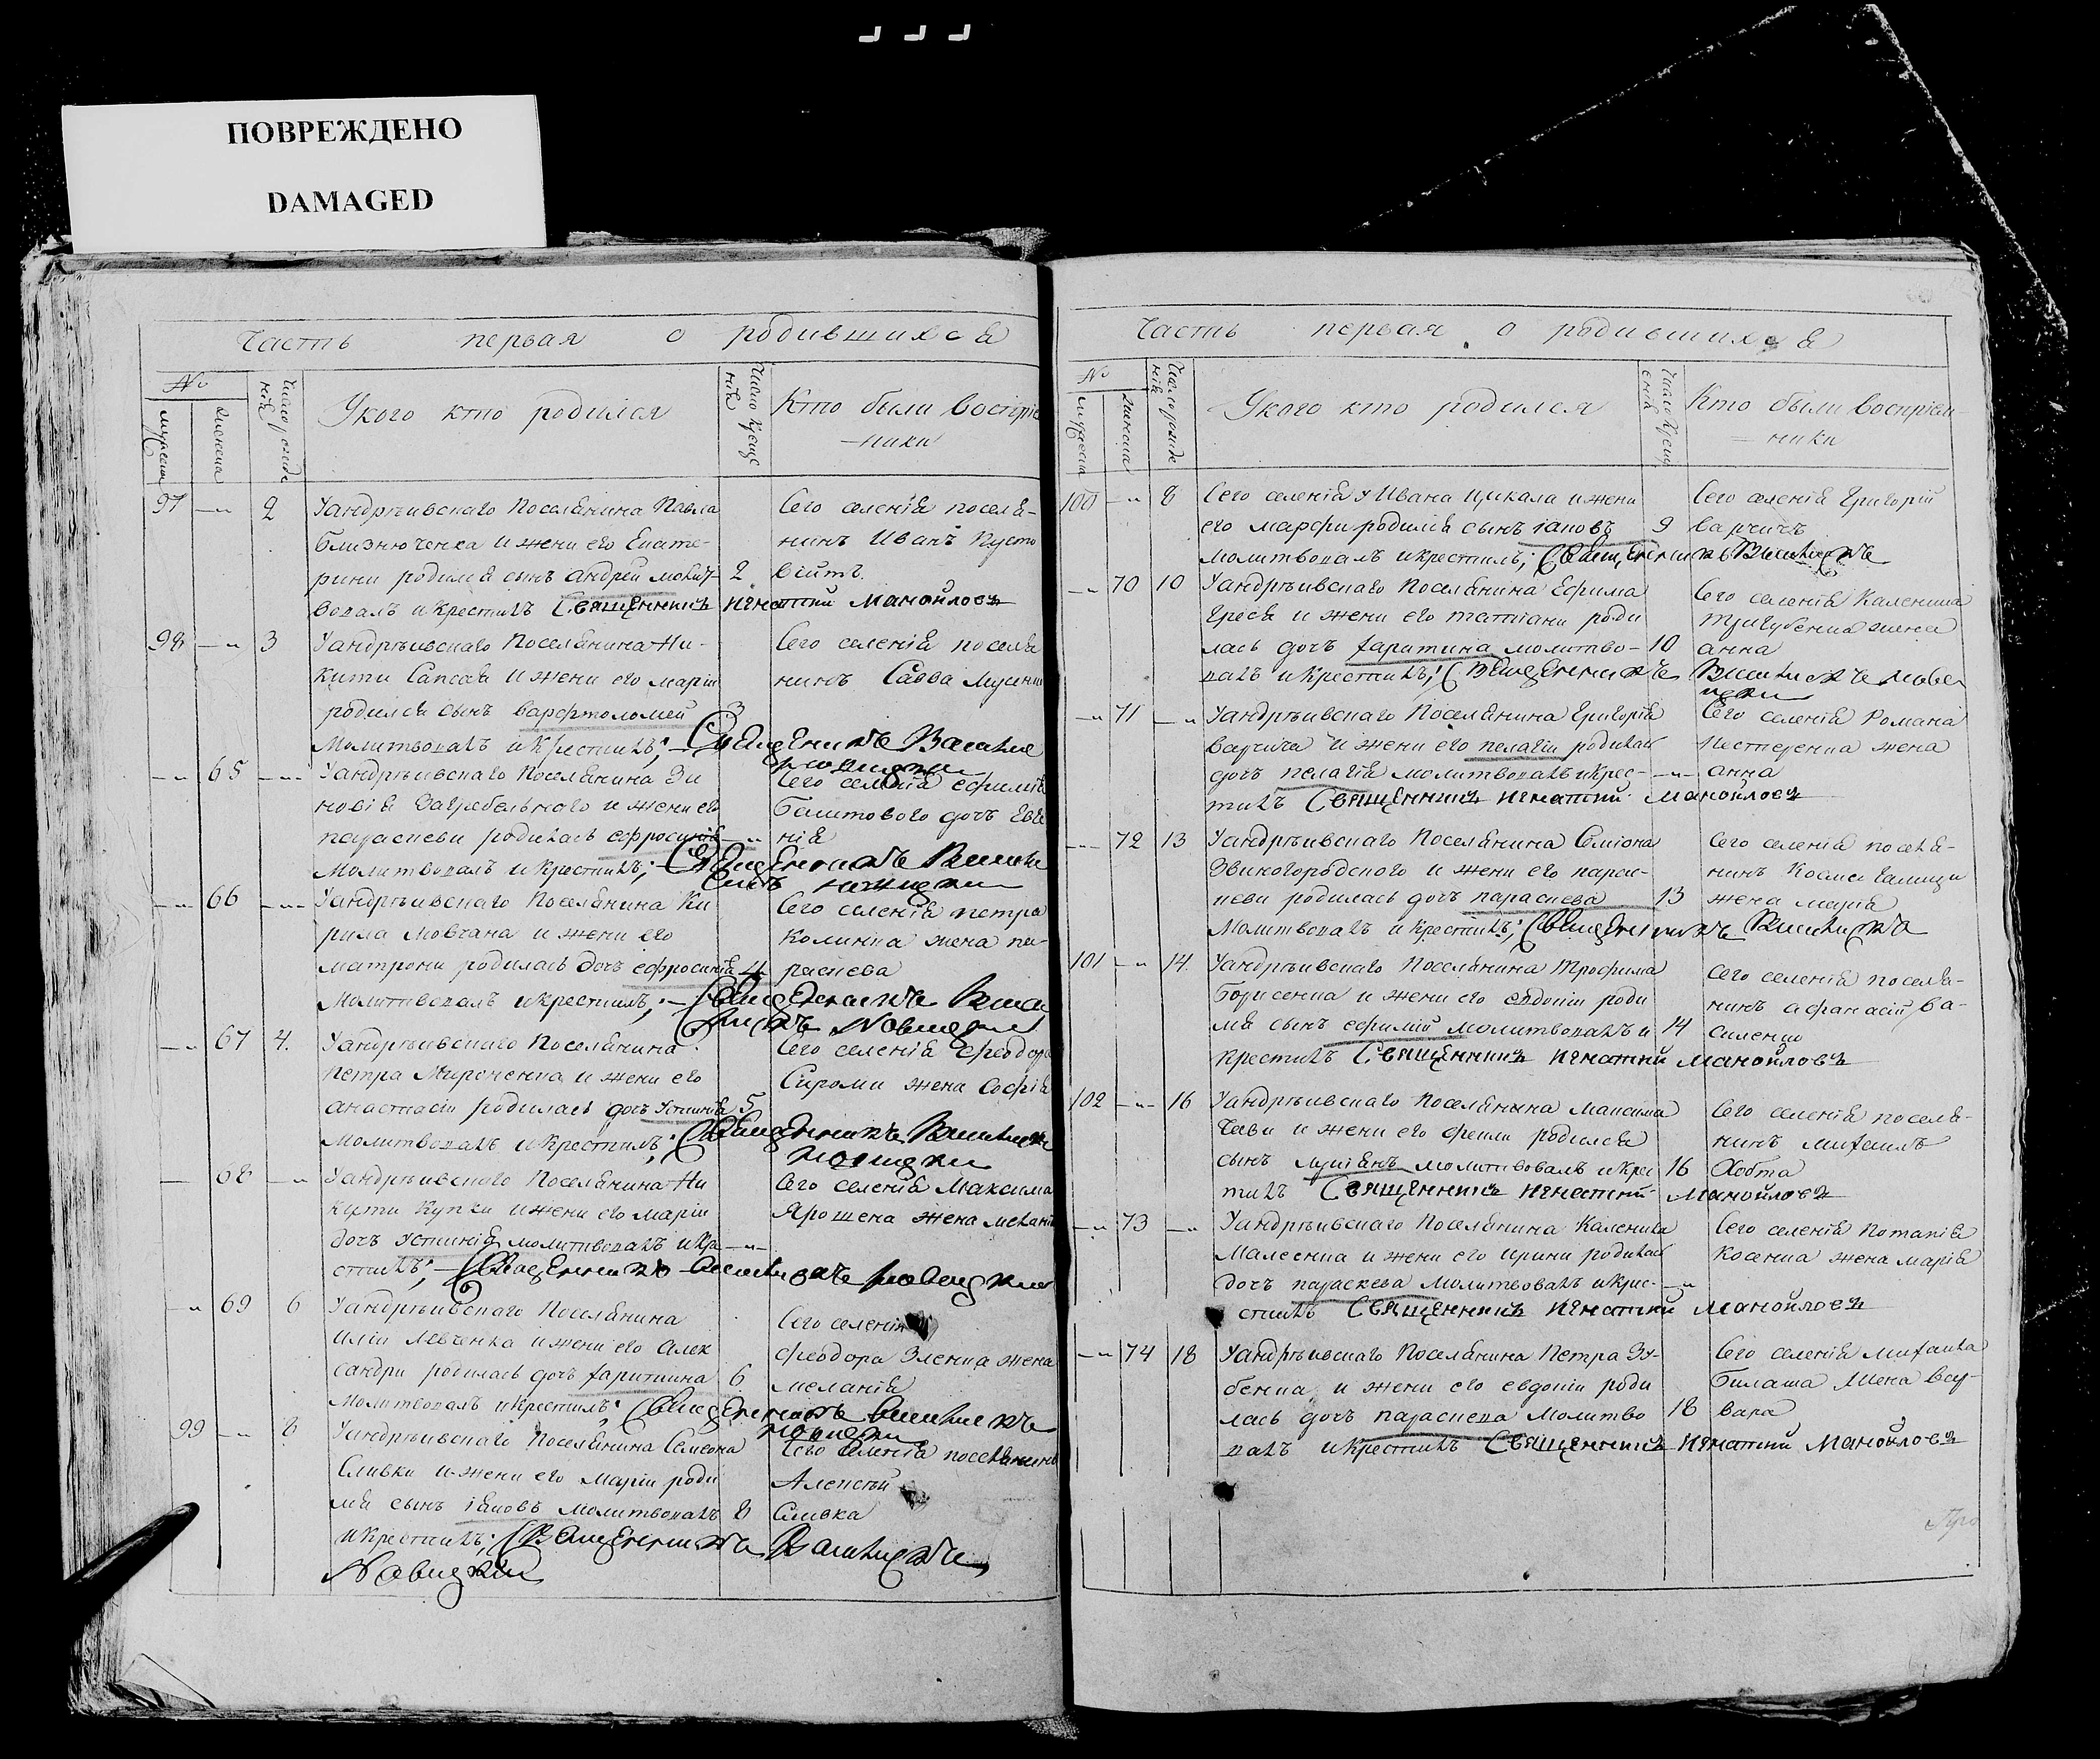 ПОВРЕЖДЕНО
DAMAGED
Часть первая о родившихся
№
Мужеска
Женска
Число рожде
нія
У кого кто родился
Число креще
нія
Кто были воспріе
-ники
97 -"- 2 У андрѣивскаго Поселянина Павла
Близнюченка и жени его Екате-
рини родился сынъ андрей молит- 2
вовалъ и крестилъ Священникъ Игнатий Манойловъ
Сего селенія поселя-
нинъ Иванъ Пусто
війтъ.
98 -"- 3 У андрѣивскаго Поселянина Ни-
кити Сапсая и жени его маріи
родился сынъ варфтоломей 3
Молитвовалъ и крестилъ; Священникъ
Сего селенія поселя
нинъ Савва
-"- 65 -"- У андрѣивскаго Поселянина Зи
новія Загребельного и жени его
параскеви родилась ефросинія -"-
Молитвовалъ и крестилъ; Священникъ
Сего селенія ефимія
Балитового дочъ Евге
нія
-"- 66 -"- У андрѣивскаго Поселянина Ки
рила Мовчана и жени его
матрони родилась дочъ ефросинія 4
Молитвовалъ и крестилъ; Священникъ
Новицкий
Сего селенія петра
Колинка жена па-
раскева
-"- 67 4. У андрѣивскаго Поселянина
Петра Мироненка и жени его
анастасіи родилась дочъ Устинія 5
молитвовалъ и крестилъ; Священникъ
Новицкий
Сего селенія феодора
Сироми жена Софія
68 -"- У андрѣивскаго Поселянина Ни
кити Купки и жени его маріи
дочъ Устинія молитвовалъ и кре -"-
стилъ; Священникъ Новицкий
Сего селенія Максима
Ярошена жена мелані
-"- 69 6 У андрѣивскаго Поселянина
Иліи Левченка и жени его алек
сандри родилась дочъ харитина 6
молитвовалъ и крестилъ; Священникъ
Новицкий
Сего селенія
феодора Зленка жена
меланія
99 -"- 8 У андрѣивскаго Поселянина Семеона
Сливки и жени его маріи роди
лся сынъ іяковъ молитвовалъ 8
и крестилъ; Священникъ
Новицкий
Сего селенія поселянинъ
Алексѣй
Сливка
Часть первая о родившихся
№
Мужеска
Женска
Число рожде
нія
У кого кто родился
Число крещ
енія
Кто были воспріем-
-ники
100 -"- 8 Сего селенія У Ивана Цикала и жени
его марфи родился сынъ іаковъ 9
молитвовалъ и крестилъ; Священникъ
Сего селенія Григорій
варчичъ
-"- 70 10 У андрѣивскаго Поселянина Ефима
Греся и жени его татіани роди
лась дочъ харитина молитво- 10
валъ и крестилъ; Священникъ
Сего селенія Каленика
Тригубенка жена
анна
-"- 71 -"- У андрѣивскаго Поселянина Григорія
варчича и жени его пелагіи родилась
дочъ пелагія молитвовалъ и крес- -"-
тилъ Священникъ Игнатий Манойловъ
Сего селенія Романа
Нестеренка жена
анна
-"- 72 13 У андрѣивскаго Поселянина Семіона
Звиногородского и жени его парас-
кеви родилась дочъ параскева 13
Молитвовалъ и крестилъ; Священникъ
Сего селенія поселя-
нинъ
жена марія
101 -"- 14. У андрѣивскаго Поселянина Трофима
Борисенка и жени его евдокіи роди
лся сынъ ефимій молитвовалъ и 14
крестилъ Священникъ Игнатий Манойловъ
Сего селенія поселя-
нинъ афанасій ва-
силенко
102 -"- 16 У андрѣивскаго Поселянина Максима
Сави и жени его фекли родился
сынъ лукіянъ молитвовалъ и крес 16
тилъ Священникъ Игнатий Манойловъ
Сего селенія поселя-
нинъ михаилъ
Хобта
-"- 73 -"- У андрѣивскаго Поселянина Каленика
Малеенка и жени его ирини родилась
дочъ параскева молитвовалъ и крес- -"-
стилъ Священникъ Игнатий Манойловъ
Сего селенія Потапія
Косенка жена марія
-"- 74 18 У андрѣивскаго Поселянина Петра Зу-
бенка и жени его евдокіи роди
лась дочъ параскева молитво 18
валъ и крестилъ Священникъ Игнатий Манойловъ
Сего селенія михаила
Билаша жена вар-
вара